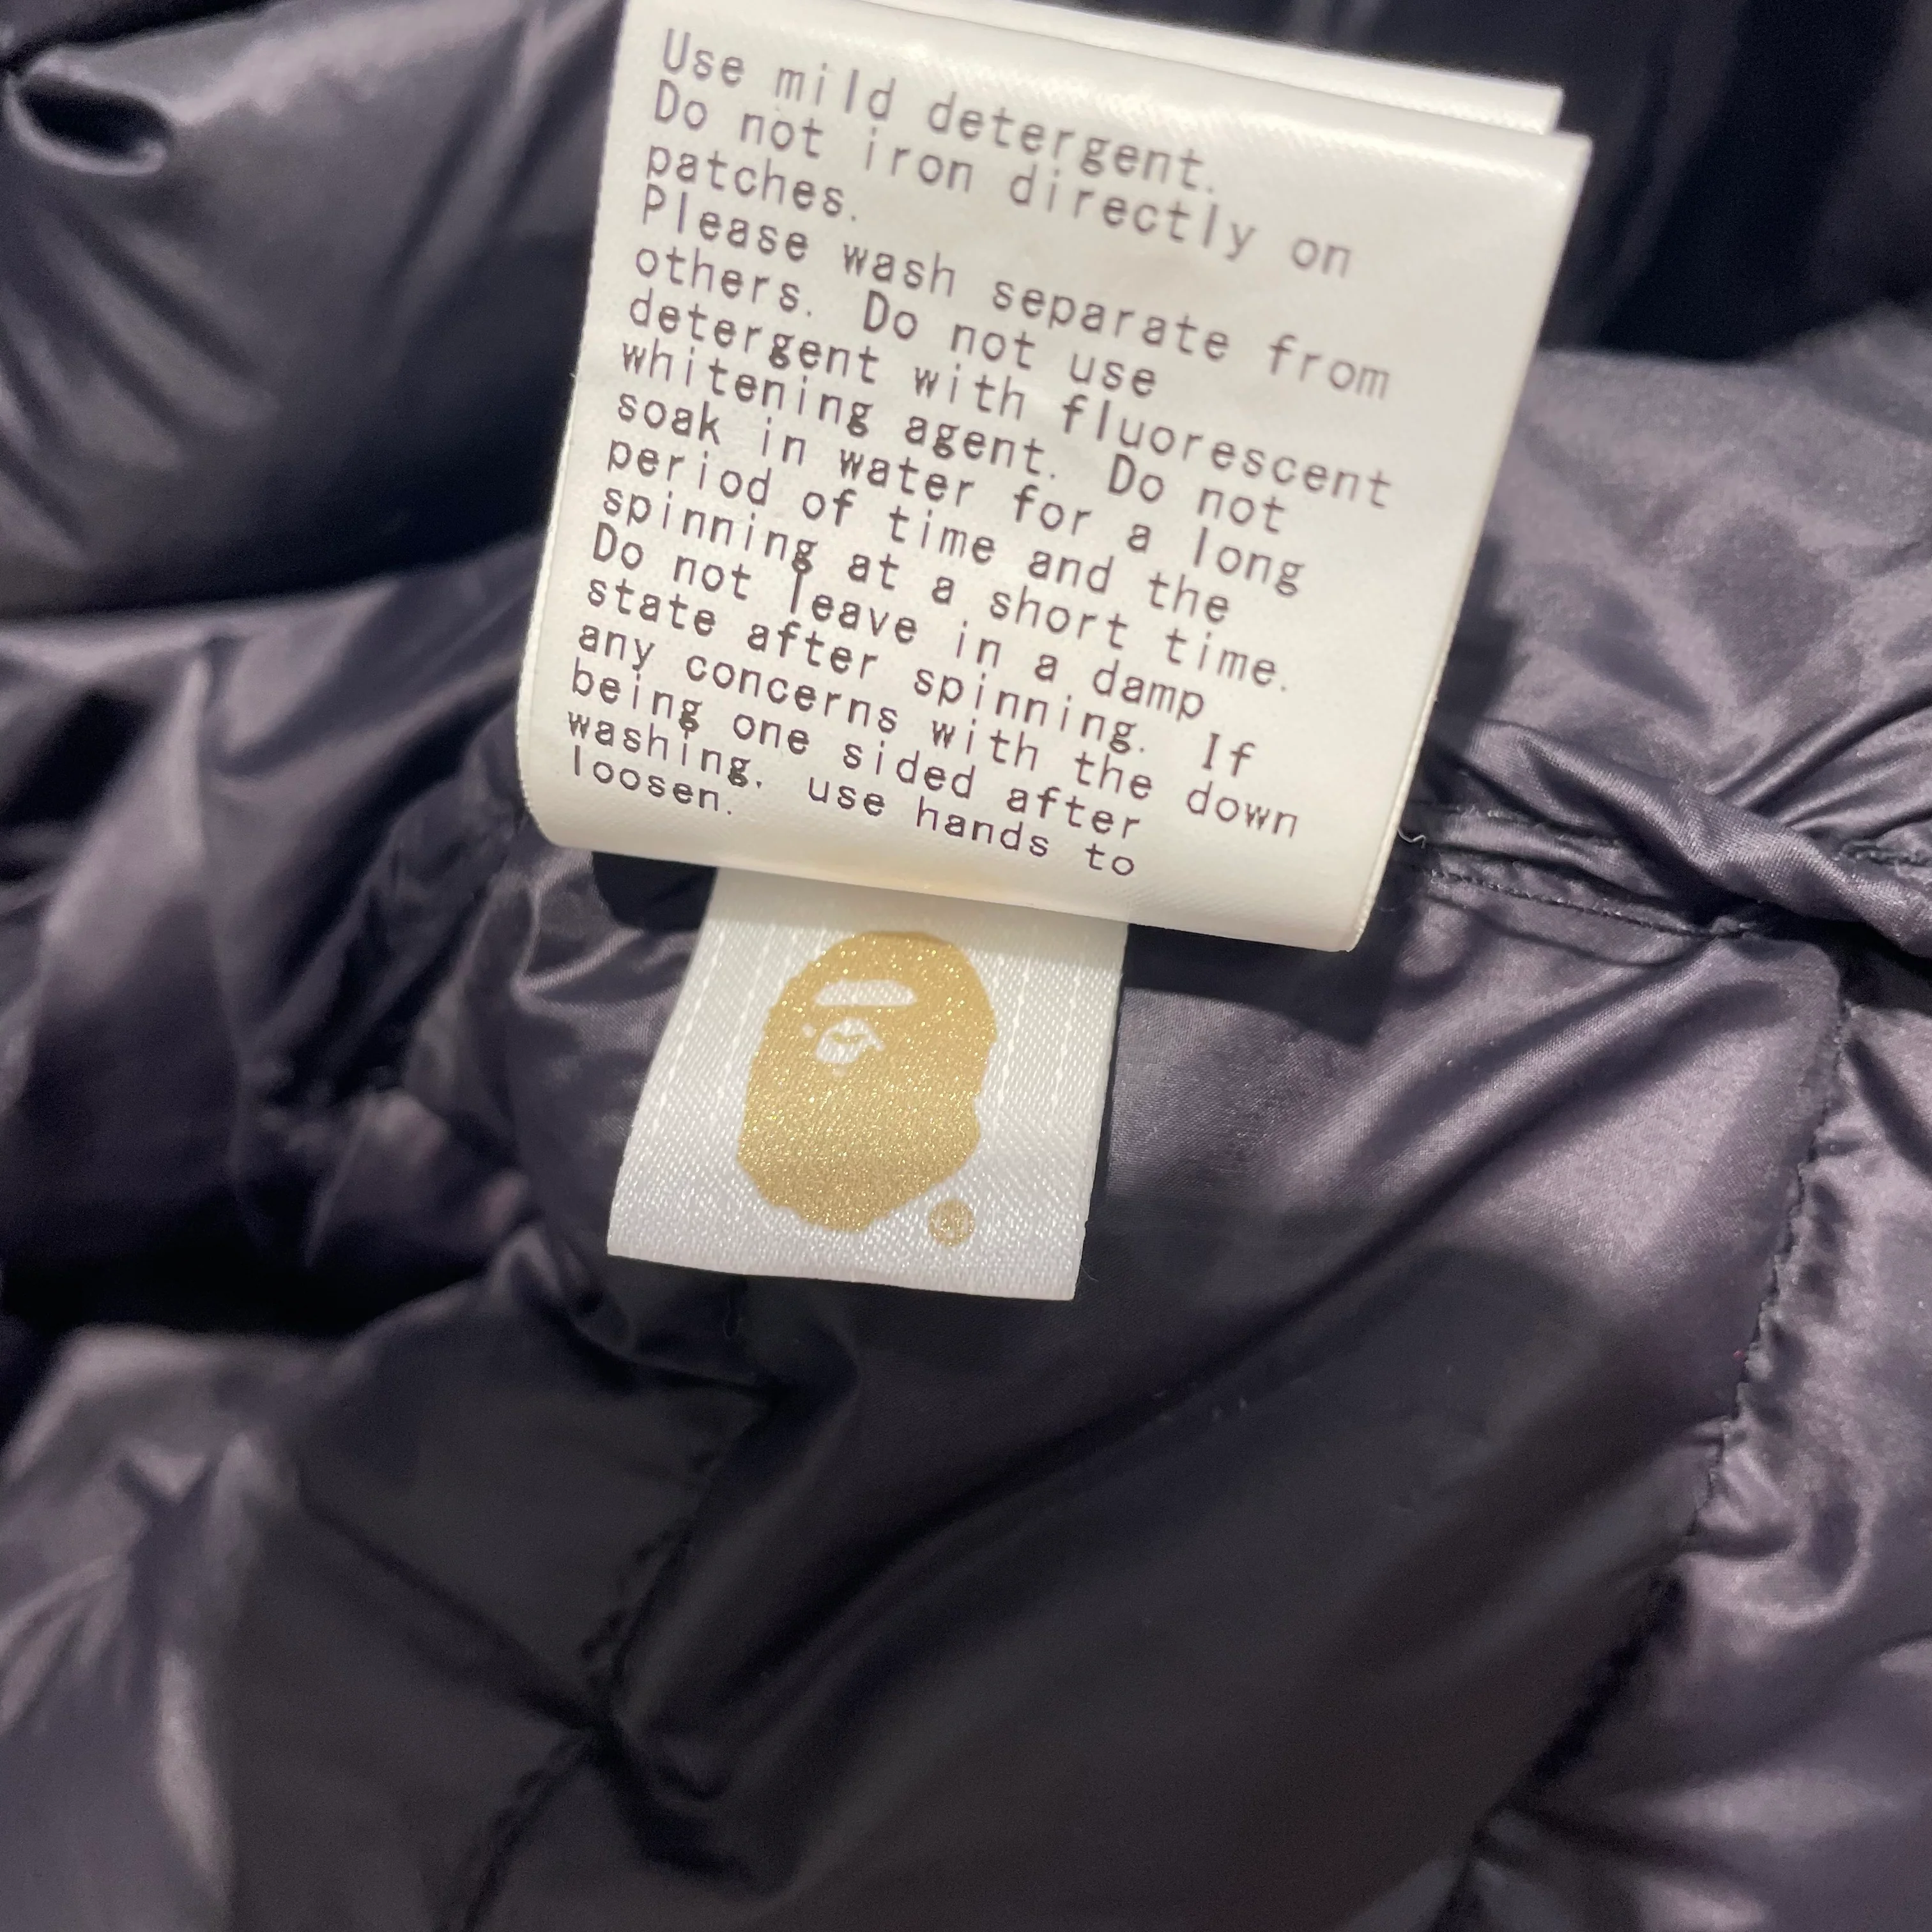 Use mild detergent.
Do not iron directly on
patches.
Please wash separate from
others. Do not use
detergent with fluorescent
whitening agent. Do not
soak in water for a long
period of time and the
spinning at a short time.
Do not leave in a damp
state after spinning. If
any concerns with the down
being one sided after
washing, use hands to
loosen.